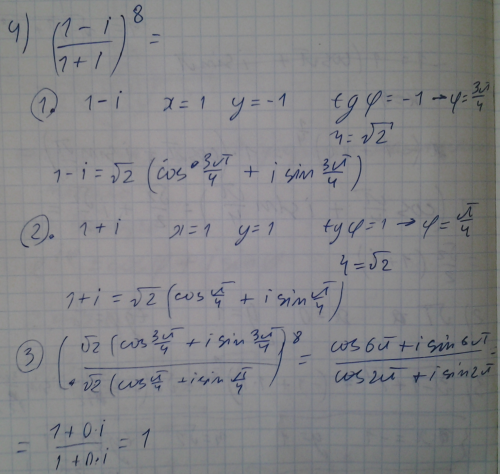 4) ((1-i)/(1+i))^8 =
①. 1-i x=1 y=-1 tg φ=-1 → φ=3π/4
r=√2
1-i=√2 (cos 3π/4 + i sin 3π/4)
②. 1+i x=1 y=1 tg φ=1 → φ=π/4
r=√2
1+i=√2 (cos π/4 + i sin π/4)
③ (√2 (cos 3π/4 + i sin 3π/4) / √2 (cos π/4 + i sin π/4))^8 = (cos 6π + i sin 6π)/(cos 2π + i sin 2π) =
= (1+0·i)/(1+0·i) = 1